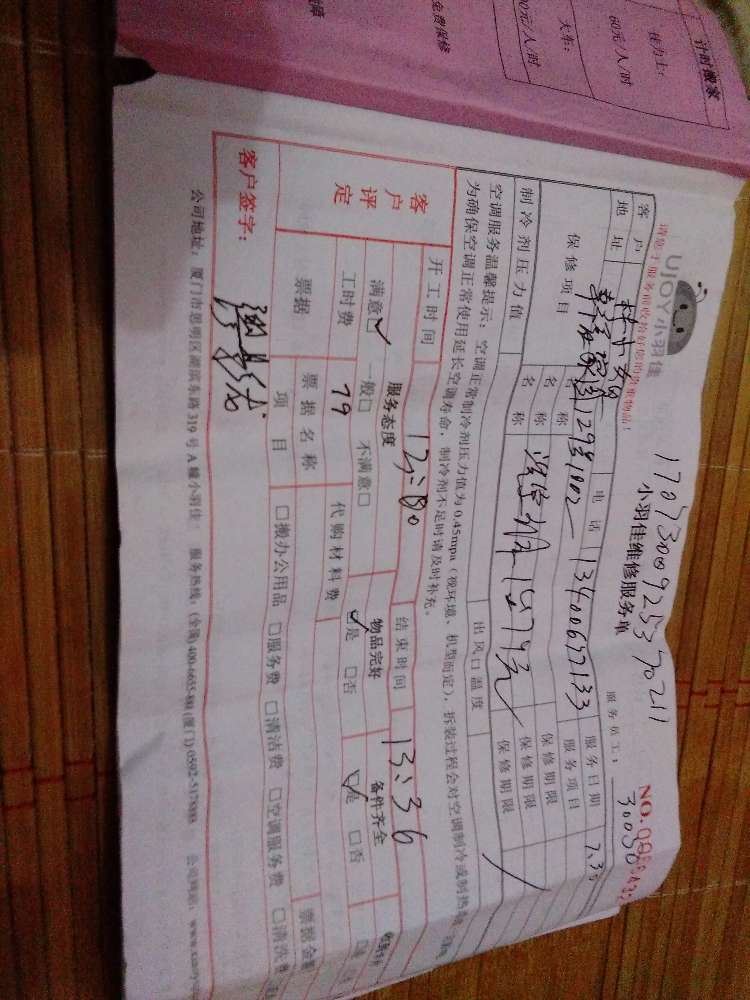 计时搬家
技力士：
60元/人/时
大车：
00元/人/时
免费保修
UJOY小羽佳
1707300925370211
小羽佳维修服务单
NO.
服务员工：
30030
客户
地址
129号1002
电话
13400657133
服务日期
7.30
保修项目
名称
服务项目
名称
保修期限
制冷剂压力值
名称
79元
保修期限
出风口温度
空调服务温馨提示：空调正常制冷剂压力值为0.45mpa（视环境、机型而定），拆装过程会对空调制冷或制热
为确保空调正常使用延长空调寿命，制冷剂不足时请及时补充。
客户评定
开工时间
结束时间
13:36
服务态度
物品完好
备件齐全
满意☑ 一般□ 不满意□
☑是 □否
☑是 □否
工时费
79
代购材料费
票据
票据名称
票据金额
项目
□搬办公用品 □服务费 □清洁费 □空调服务费 □清洗
客户签字：
公司地址：厦门市思明区湖滨东路319号A幢小羽佳 服务热线：(全国)400-6655-888 (厦门)0592-5178888 公司网站：